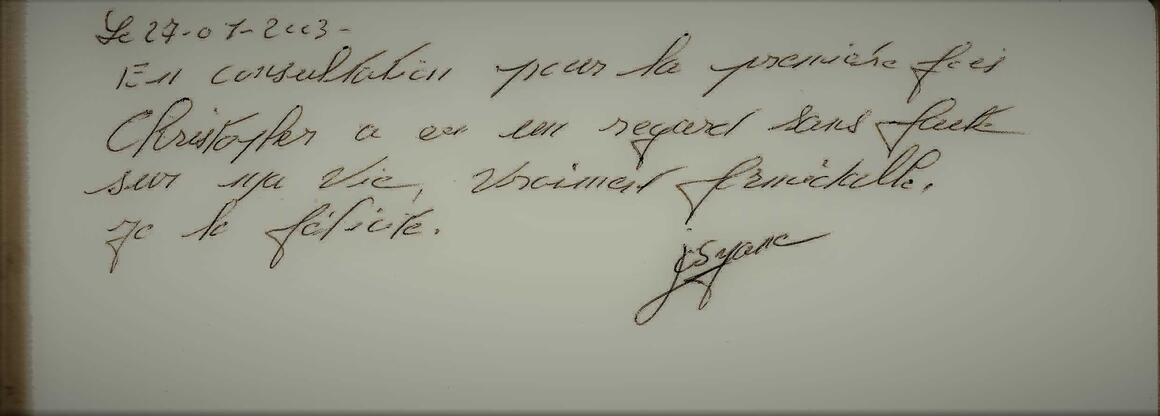 Le 27-01-2003-
En consultation pour la première fois
Christopher a eu un regard sans faute
sur ma vie, vraiment formidable.
Je le félicite.